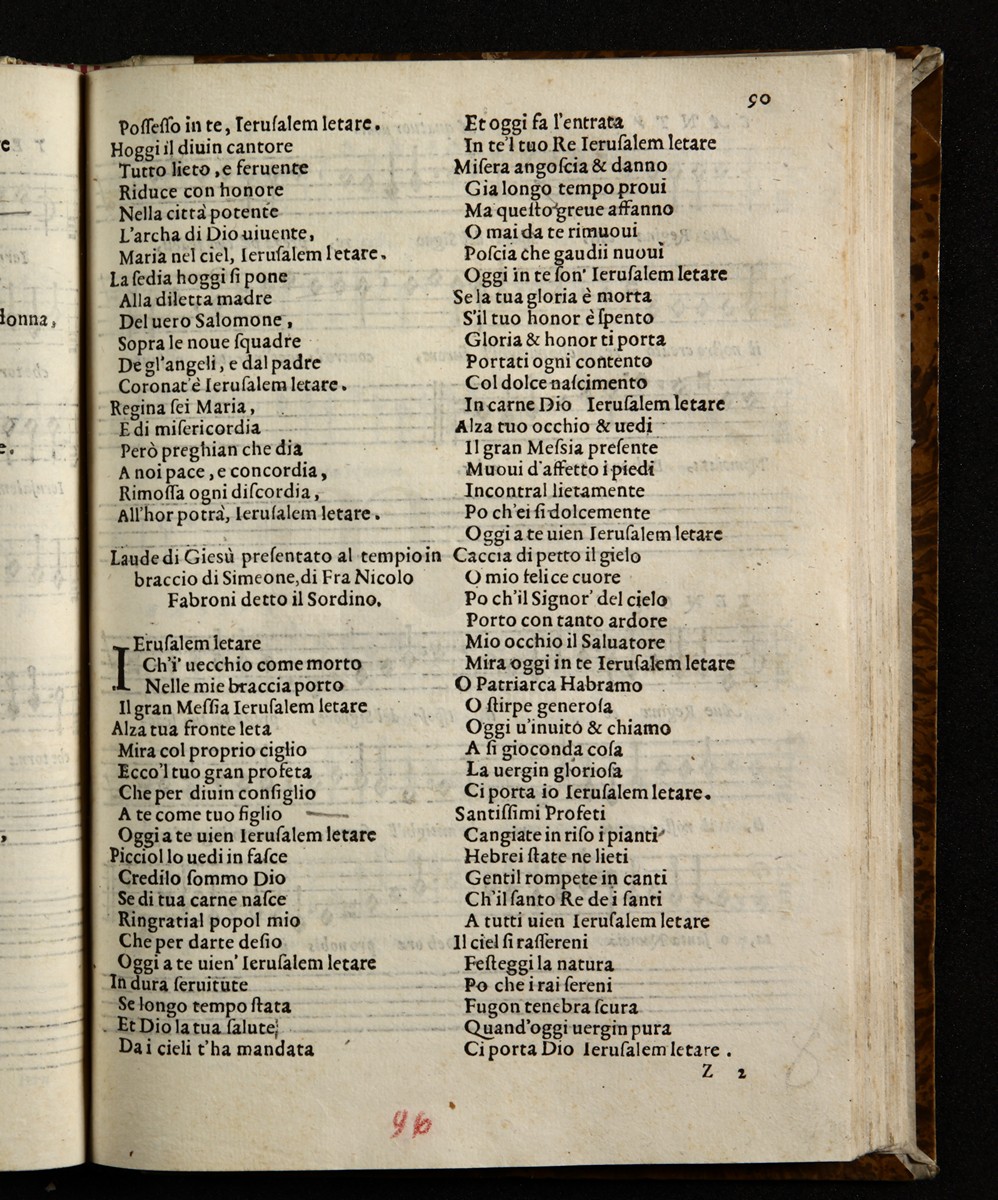 90
Poſſeſſo in te, Ieruſalem letare.
Hoggi il diuin cantore
Tutto lieto, e feruente
Riduce con honore
Nella città potente
L'archa di Dio uiuente,
Maria nel ciel, Ieruſalem letare.
La ſedia hoggi ſi pone
Alla diletta madre
Del uero Salomone,
Sopra le noue ſquadre
De gl'angeli, e dal padre
Coronat'è Ieruſalem letare.
Regina ſei Maria,
E di miſericordia
Però preghian che dia
A noi pace, e concordia,
Rimoſſa ogni diſcordia,
All'hor potrà, Ieruſalem letare.
Laude di Giesù preſentato al tempio in
braccio di Simeone, di Fra Nicolo
Fabroni detto il Sordino.
IEruſalem letare
Ch'i' uecchio come morto
Nelle mie braccia porto
Il gran Meſſia Ieruſalem letare
Alza tua fronte leta
Mira col proprio ciglio
Ecco'l tuo gran profeta
Che per diuin conſiglio
A te come tuo figlio
Oggi a te uien Ieruſalem letare
Picciol lo uedi in faſce
Credilo ſommo Dio
Se di tua carne naſce
Ringratial popol mio
Che per darte deſio
Oggi a te uien' Ieruſalem letare
In dura ſeruitute
Se longo tempo ſtata
Et Dio la tua ſalute
Da i cieli t'ha mandata
Et oggi fa l'entrata
In te'l tuo Re Ieruſalem letare
Miſera angoſcia & danno
Gia longo tempo proui
Ma queſto greue affanno
O mai da te rimuoui
Poſcia che gaudii nuoui
Oggi in te ſon' Ieruſalem letare
Se la tua gloria è morta
S'il tuo honor è ſpento
Gloria & honor ti porta
Portati ogni contento
Col dolce naſcimento
In carne Dio Ieruſalem letare
Alza tuo occhio & uedi
Il gran Meſsia preſente
Muoui d'affetto i piedi
Incontral lietamente
Po ch'ei ſi dolcemente
Oggi a te uien Ieruſalem letare
Caccia di petto il gielo
O mio felice cuore
Po ch'il Signor' del cielo
Porto con tanto ardore
Mio occhio il Saluatore
Mira oggi in te Ieruſalem letare
O Patriarca Habramo
O ſtirpe generoſa
Oggi u'inuitò & chiamo
A ſi gioconda coſa
La uergin glorioſa
Ci porta io Ieruſalem letare.
Santiſſimi Profeti
Cangiate in riſo i pianti
Hebrei ſtate ne lieti
Gentil rompete in canti
Ch'il ſanto Re de i ſanti
A tutti uien Ieruſalem letare
Il ciel ſi raſſereni
Feſteggi la natura
Po che i rai ſereni
Fugon tenebra ſcura
Quand'oggi uergin pura
Ci porta Dio Ieruſalem letare.
Z 2
96